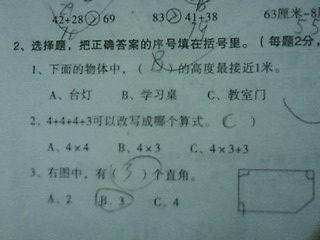 42+28>69 83>41+38 63厘米-8
2、选择题，把正确答案的序号填在括号里。（每题2分，
1、下面的物体中，（B）的高度最接近1米。
A、台灯 B、学习桌 C、教室门
2、4+4+4+3可以改写成哪个算式。（C）
A、4×4 B、4×3 C、4×3+3
3、右图中，有（3）个直角。
A、2 B、3 C、4